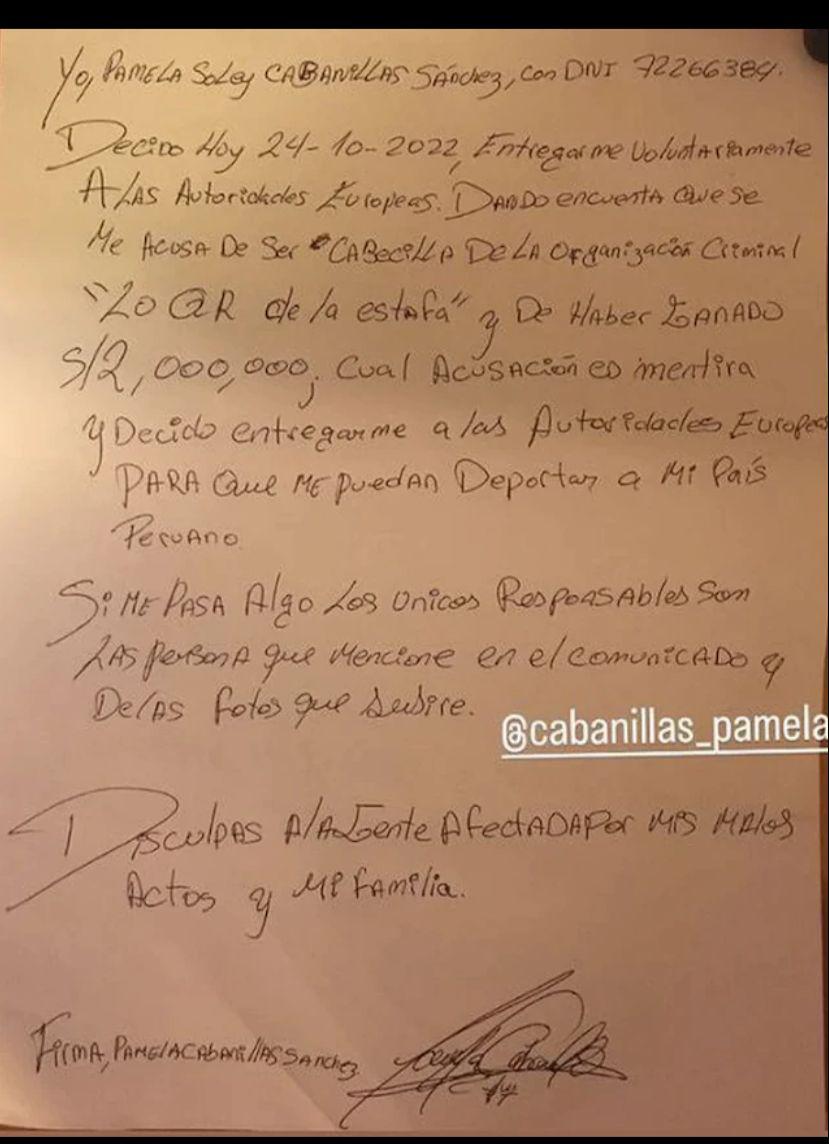 Yo, PAMELA Soley CABANILLAS Sánchez, con DNI 72266384.
Decido Hoy 24-10-2022, Entregarme Voluntariamente
A LAS Autoridades Europeas. DANDO encuenta Que se
Me Acusa De Ser CABecilla De LA Organización Criminal
"Lo QR de la estafa" y De Haber GANADO
S/2,000,000; Cual Acusación es mentira
y Decido entregarme a las Autoridades Europeas
PARA Que ME puedan Deportar a Mi País
Peruano.
Si ME PASA Algo Los Unicos Responsables Son
LAS persona que Mencione en el comunicado y
De las fotos que subire.
@cabanillas_pamela
Disculpas A la Gente AfectADA Por mis MAlos
Actos y Mi familia.
Firma, PAMElA CAbANillAS SANchez